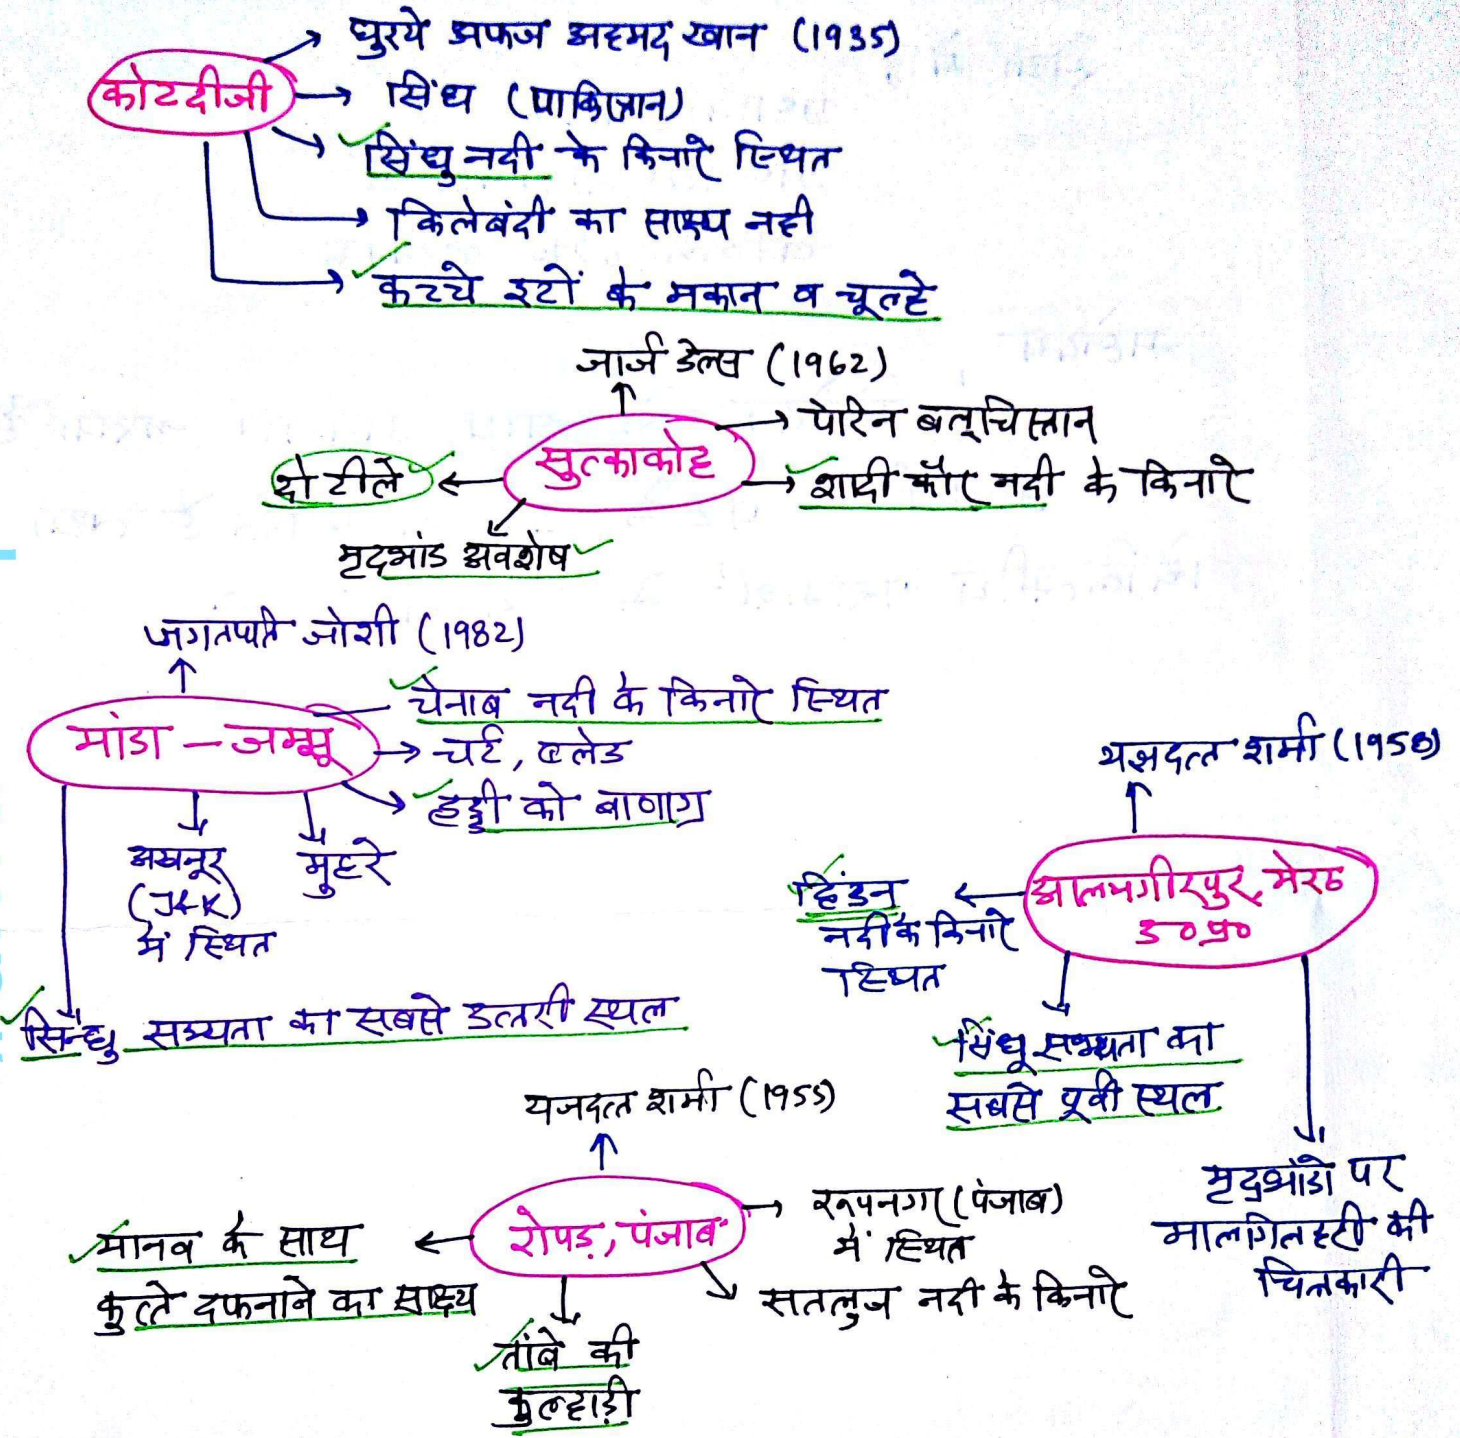 घुरये अफज अहमद खान (1935)
कोटदीजी
सिंध (पाकिस्तान)
सिंधु नदी के किनारे स्थित
किलेबंदी का साक्ष्य नही
कच्चे इटों के मकान व चूल्हे
जार्ज डेल्स (1962)
पेरिन बलूचिस्तान
सुत्काकोह
दो टीले
शादी कौर नदी के किनारे
मृदभांड अवशेष
जगतपति जोशी (1982)
चेनाब नदी के किनारे स्थित
मांडा – जम्मू
चर्ट, ब्लेड
हड्डी को बाणाग्र
अखनूर
(J&K)
में स्थित
मुहरे
सिन्धु सभ्यता का सबसे उत्तरी स्थल
यज्ञदत्त शर्मा (1958)
आलमगीरपुर, मेरठ
उ०प्र०
हिंडन
नदी के किनारे
स्थित
सिंधू सभ्यता का
सबसे पूर्वी स्थल
मृदभांडो पर
मालगिलहरी की
चित्रकारी
यजदत्त शर्मा (1955)
रोपड़, पंजाब
रूपनगर (पंजाब)
में स्थित
सतलुज नदी के किनारे
मानव के साथ
कुत्ते दफनाने का साक्ष्य
तांबे की
कुल्हाड़ी